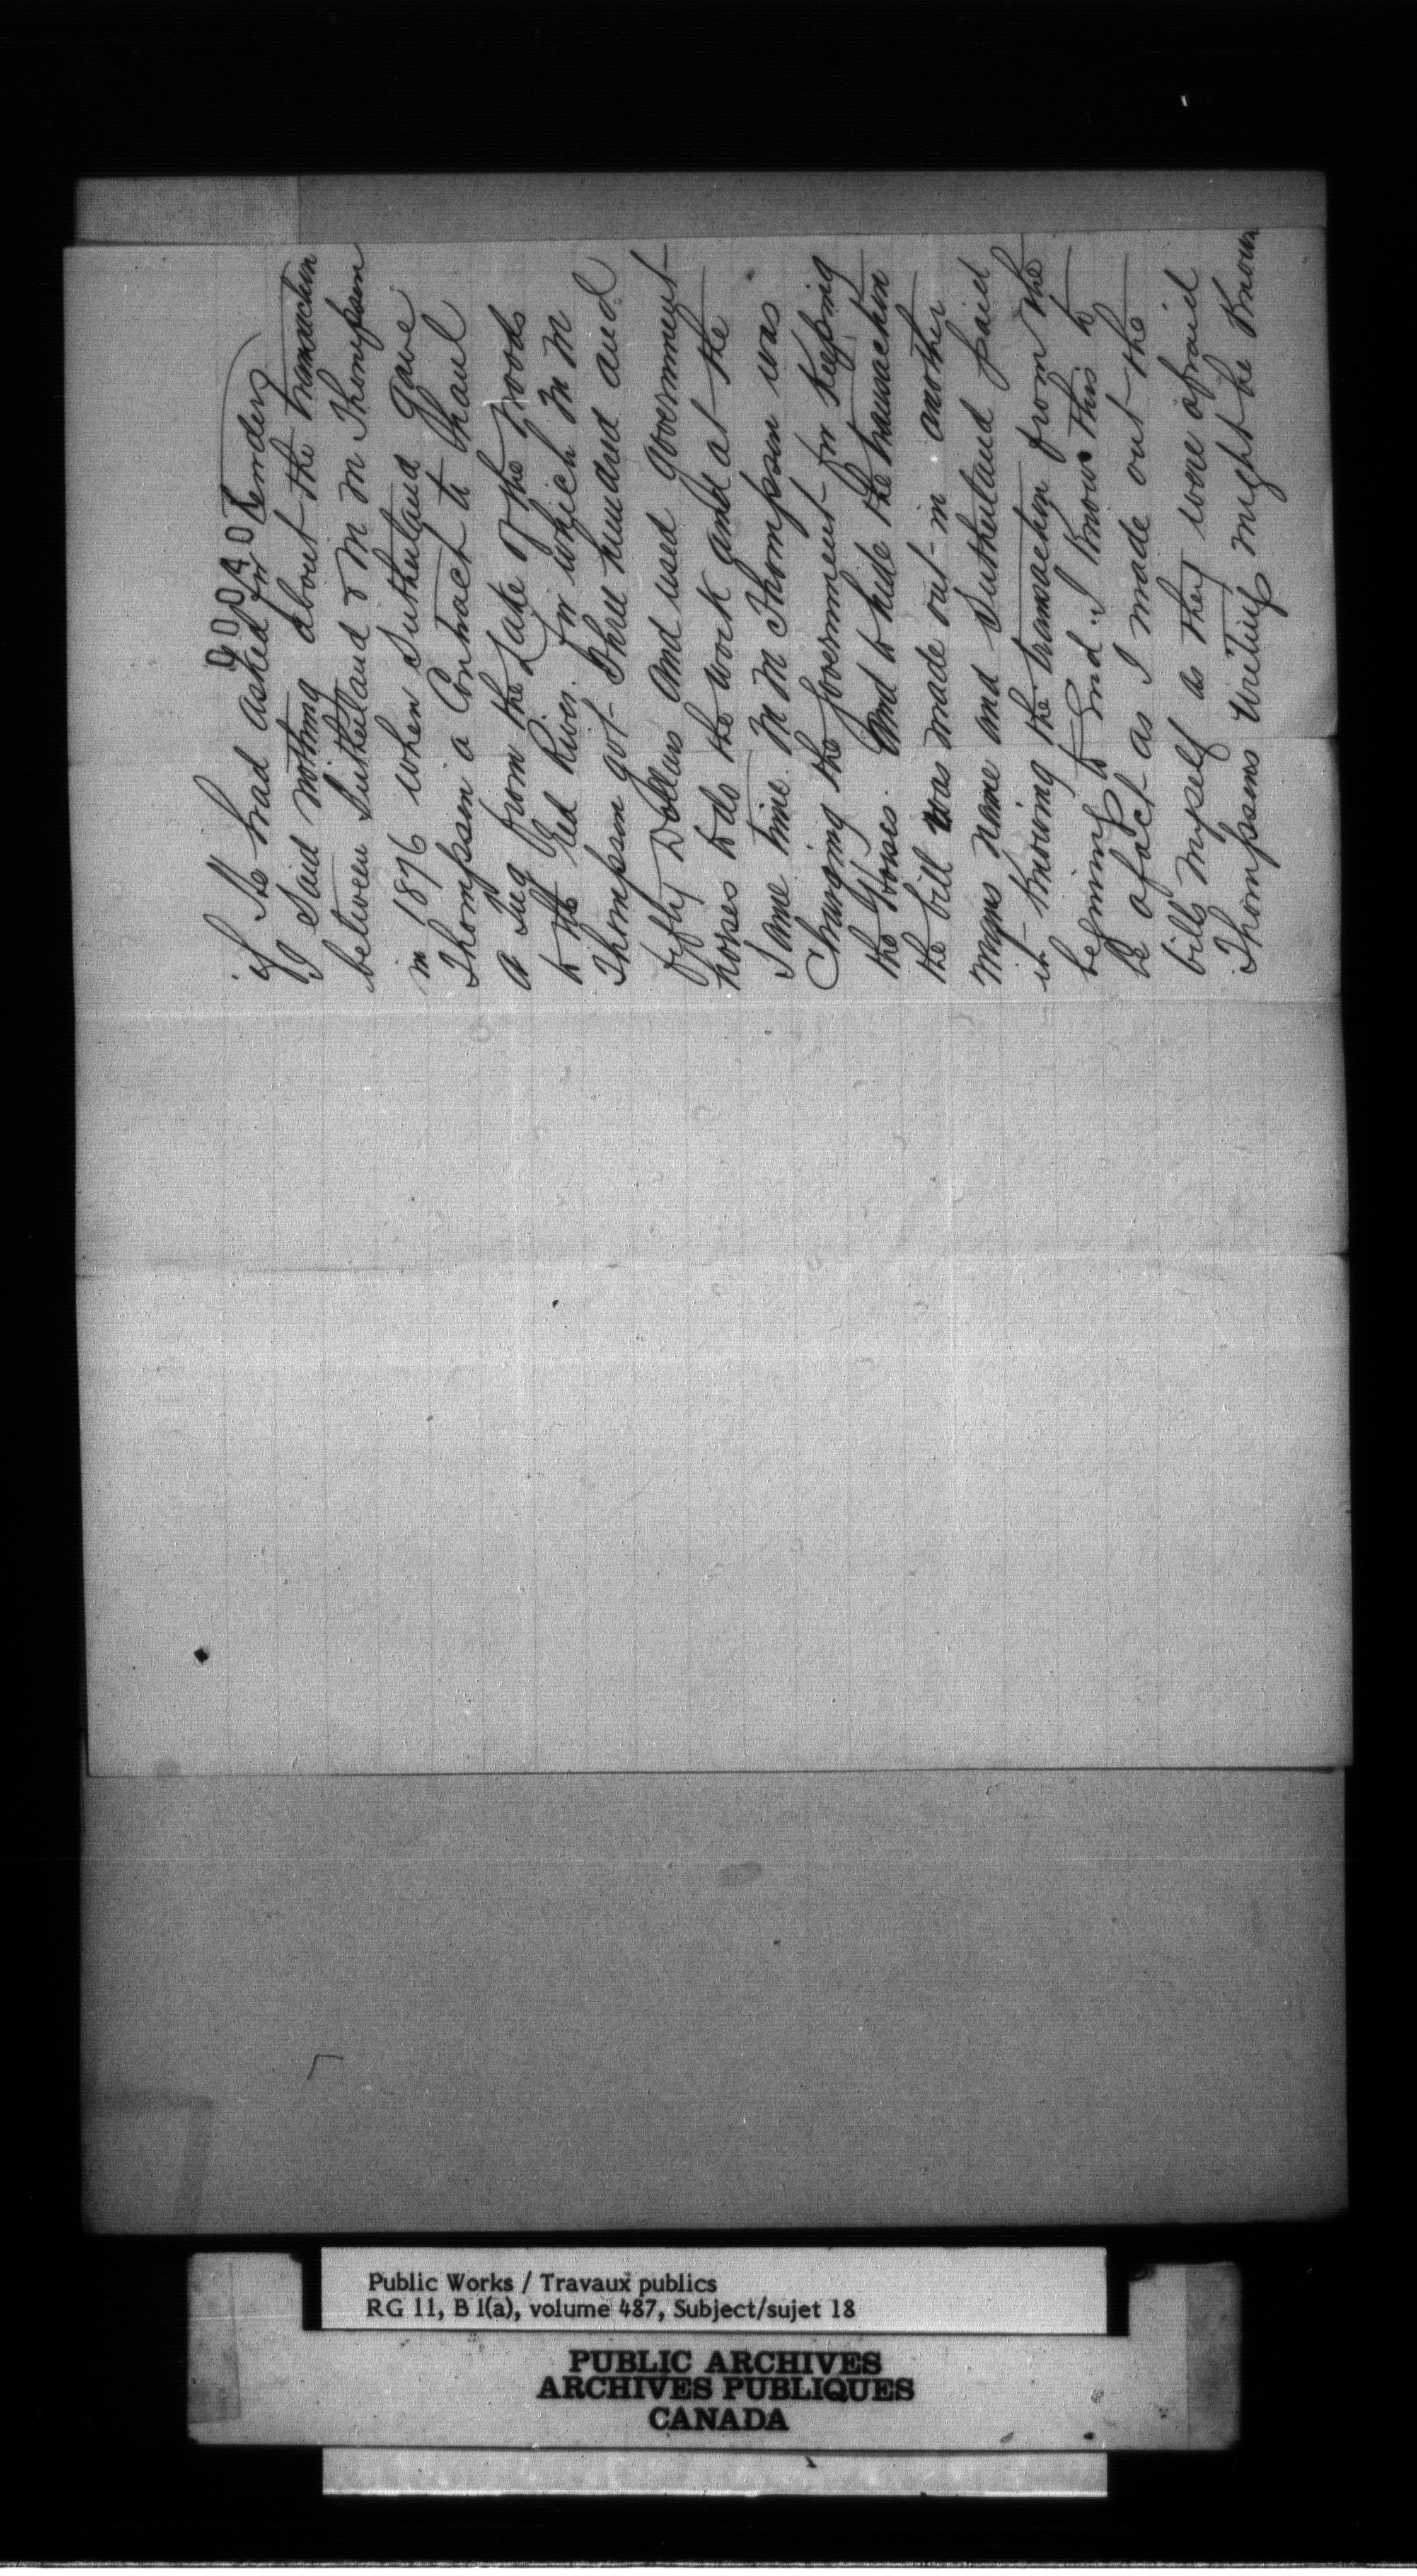 000407
if He had asked for tenders
I said nothing about the transaction
between Sutherland & M M Thompson
in 1876 when Sutherland gave
Thompson a Contract to haul
a Tug from the Lake of the Woods
to the Red River. for which M M
Thompson got Three hundred and
fifty Dollars and used Government
horses to do the work and at the
same time M M Thompson was
Charging the Government for keeping
the Horses. And to hide the transaction
the bill was made out in another
mans name and Sutherland paid
it knowing the transaction from the
beginning to End. I know this to
be a fact as I made out the
bills myself as they were afraid
Thompsons writing might be known
Public Works / Travaux publics
RG 11, B 1(a), volume 487, Subject/sujet 18
PUBLIC ARCHIVES
ARCHIVES PUBLIQUES
CANADA